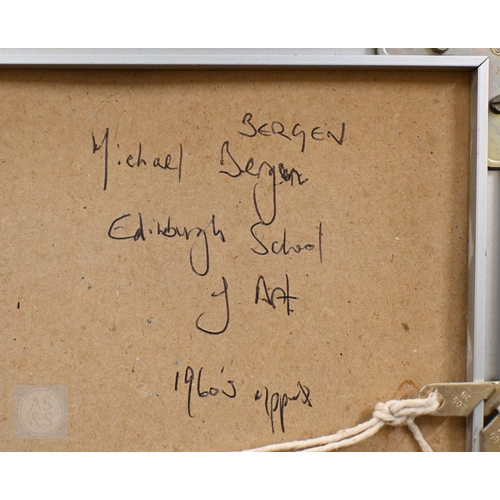 BERGEN
Michael Bergen
Edinburgh School
of Art
1960's approx